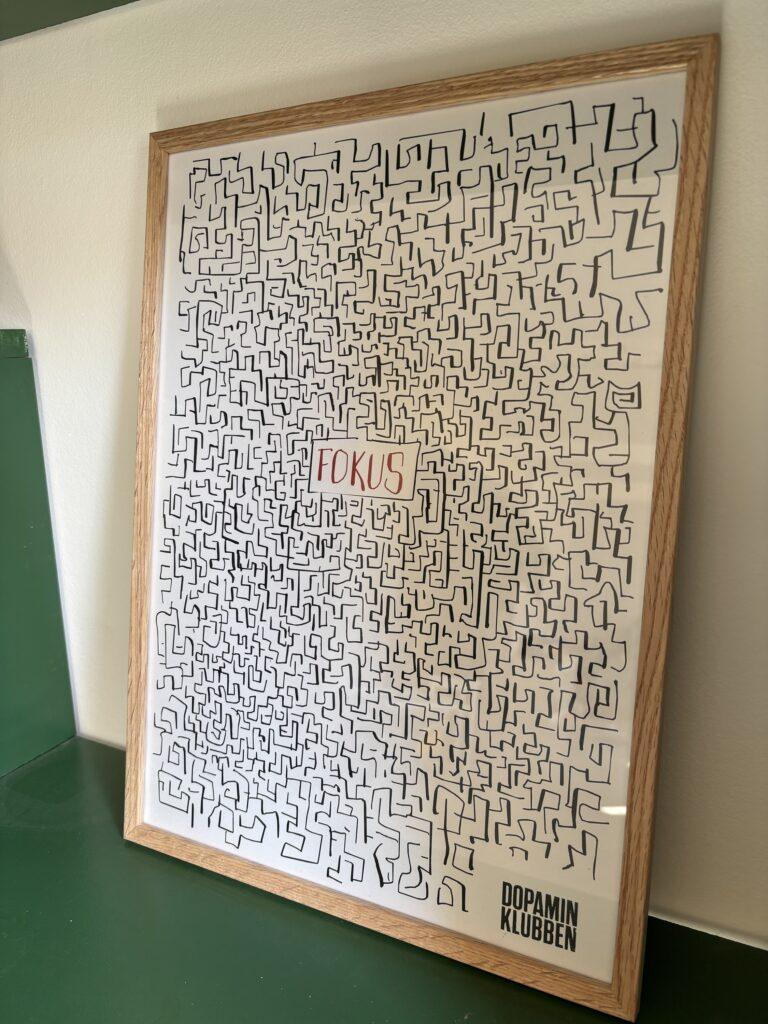 FOKUS
DOPAMIN
KLUBBEN